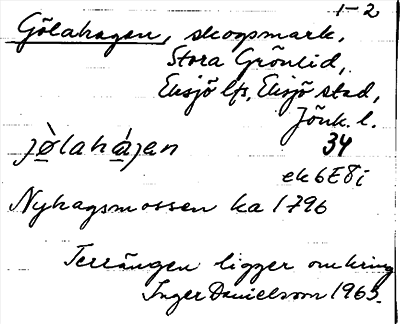 1-2
Gölahagen, skogsmark,
Stora Grönlid,
Eksjö lfs, Eksjö stad,
Jönk. l.
jø̀lahájen 34
ek 6E8i
Nyhagsmossen ka 1796
Terrängen ligger omkring
Inger Danielsson 1965.